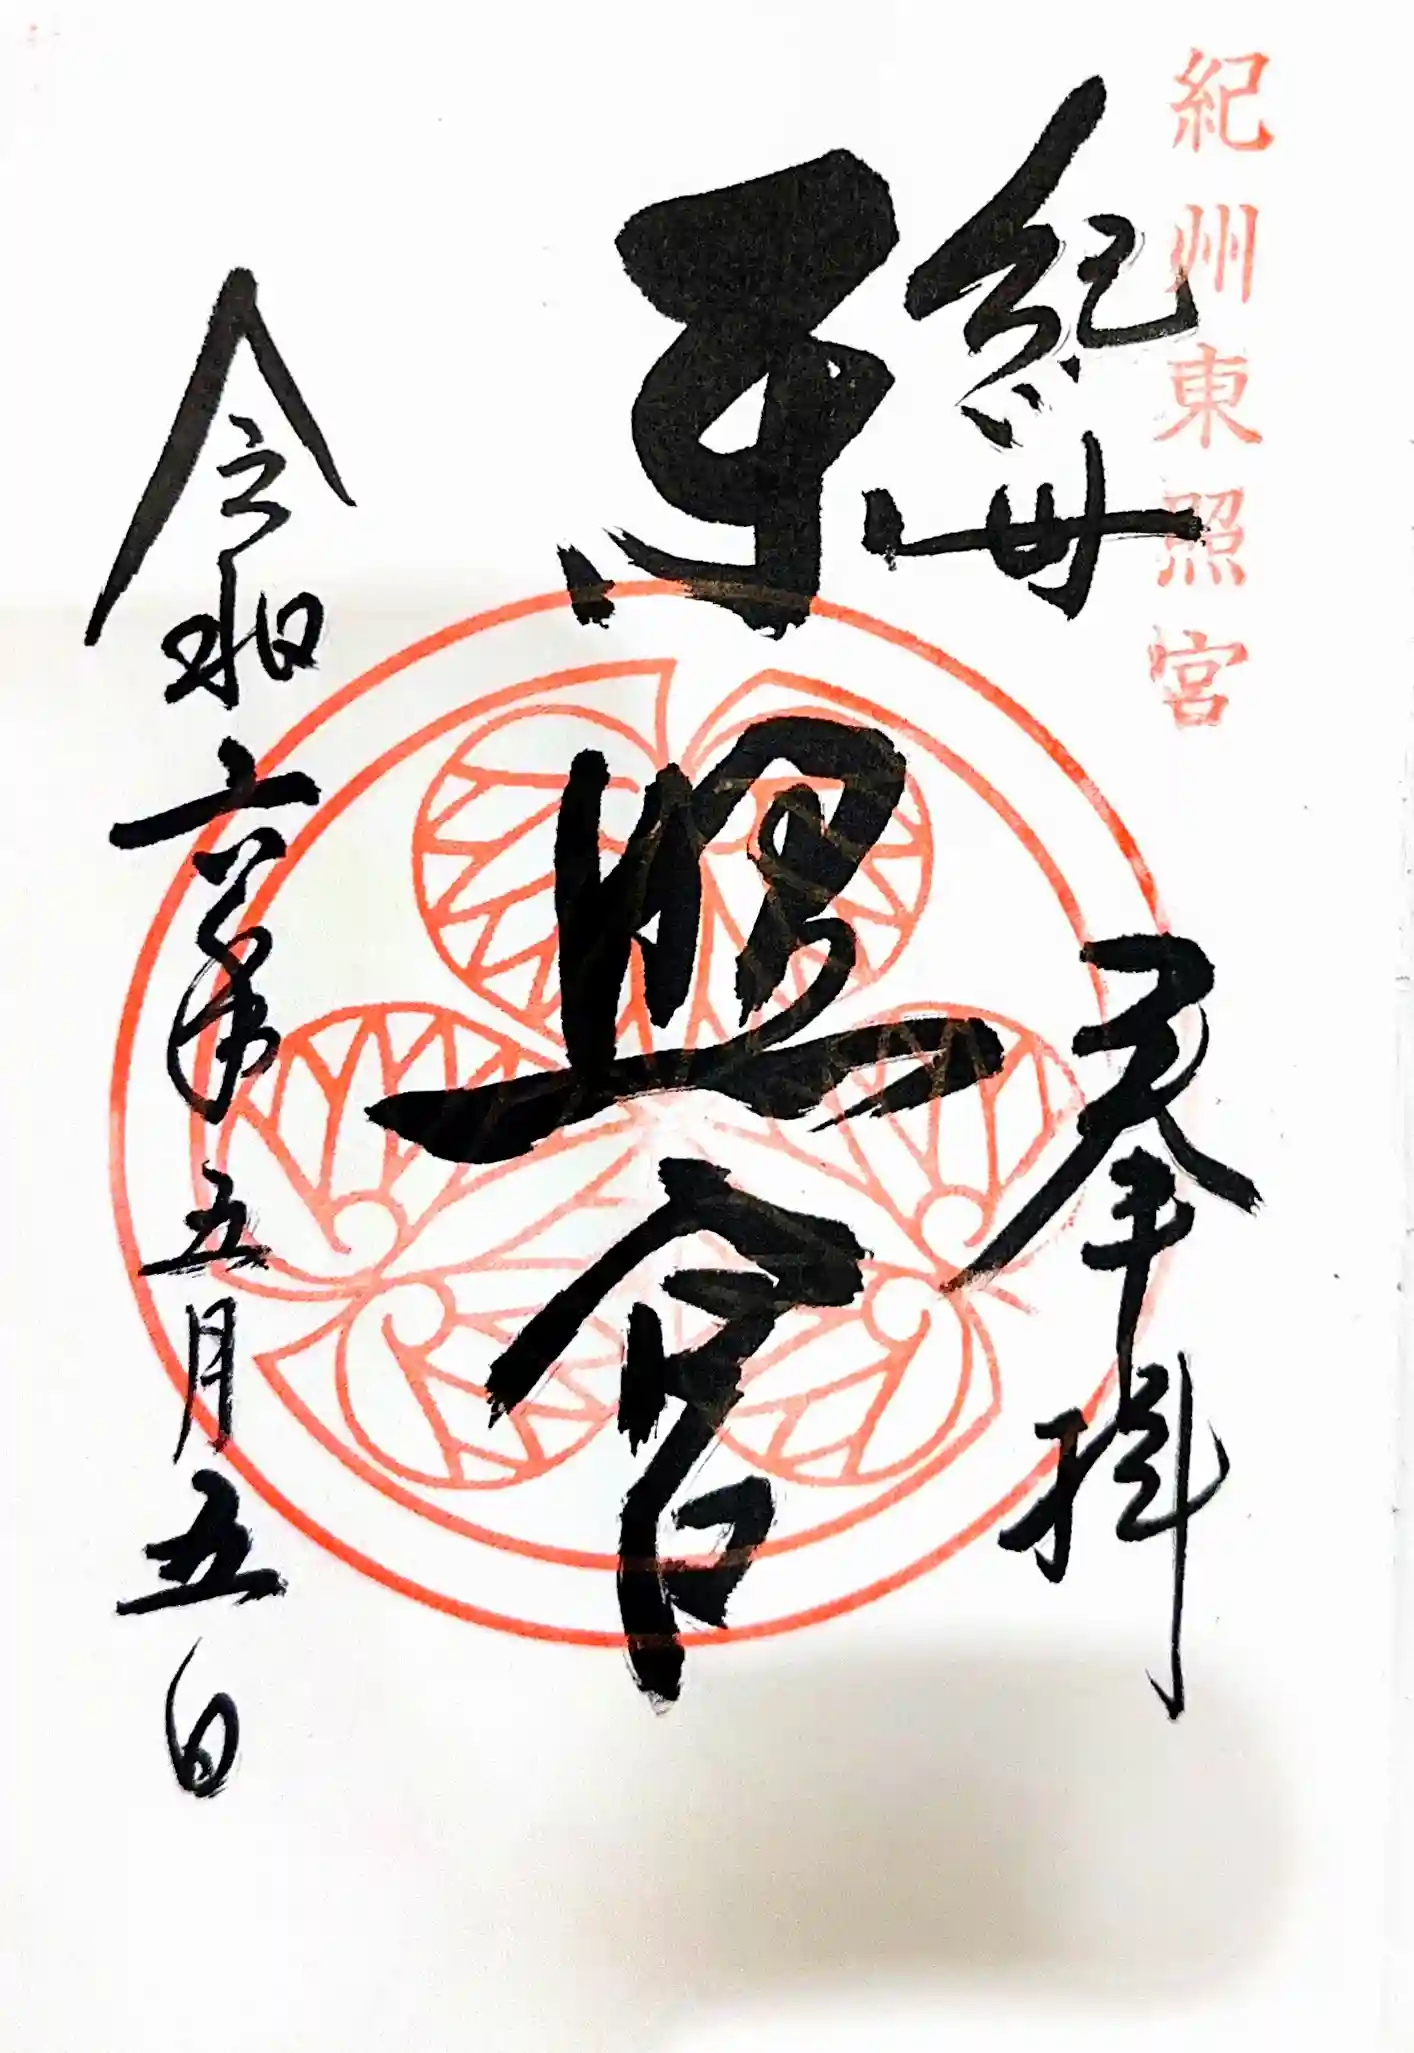 紀州東照宮
紀州
奉拝
東照宮
令和六年五月五日